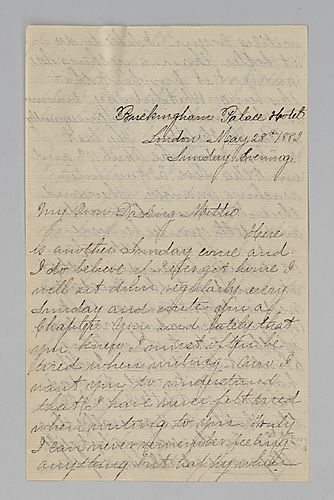 Buckingham Palace Hotel
London May 28th 1882
Sunday Evening.
My Own Darling Mettie
Here
is another Sunday come and
I do believe if I ever get home I
will sit down regularly every
Sunday and write you a
Chapter. You said lately that
you knew I must often be
tired when writing. Now I
want you to understand
that I have never felt tired
when writing to you. Truly
I can never remember feeling
anything but happy when